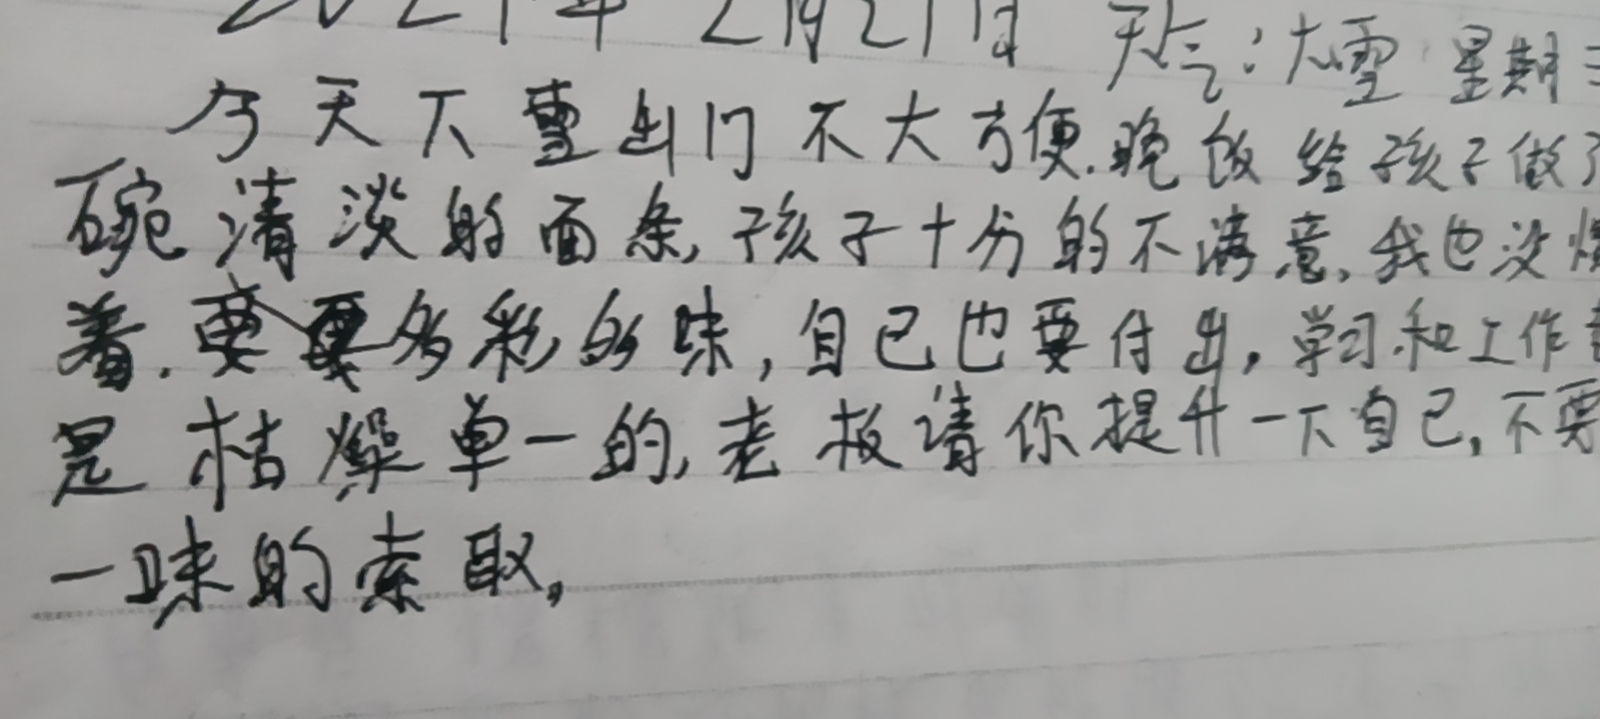 2月21日 天气：大雪 星期三
今天下雪出门不大方便.晚饭给孩子做了
碗清淡的面条,孩子十分的不满意,我也没惯
着.要多彩的味,自己也要付出,学习和工作
是枯燥单一的,老板请你提升一下自己,不要
一味的索取,